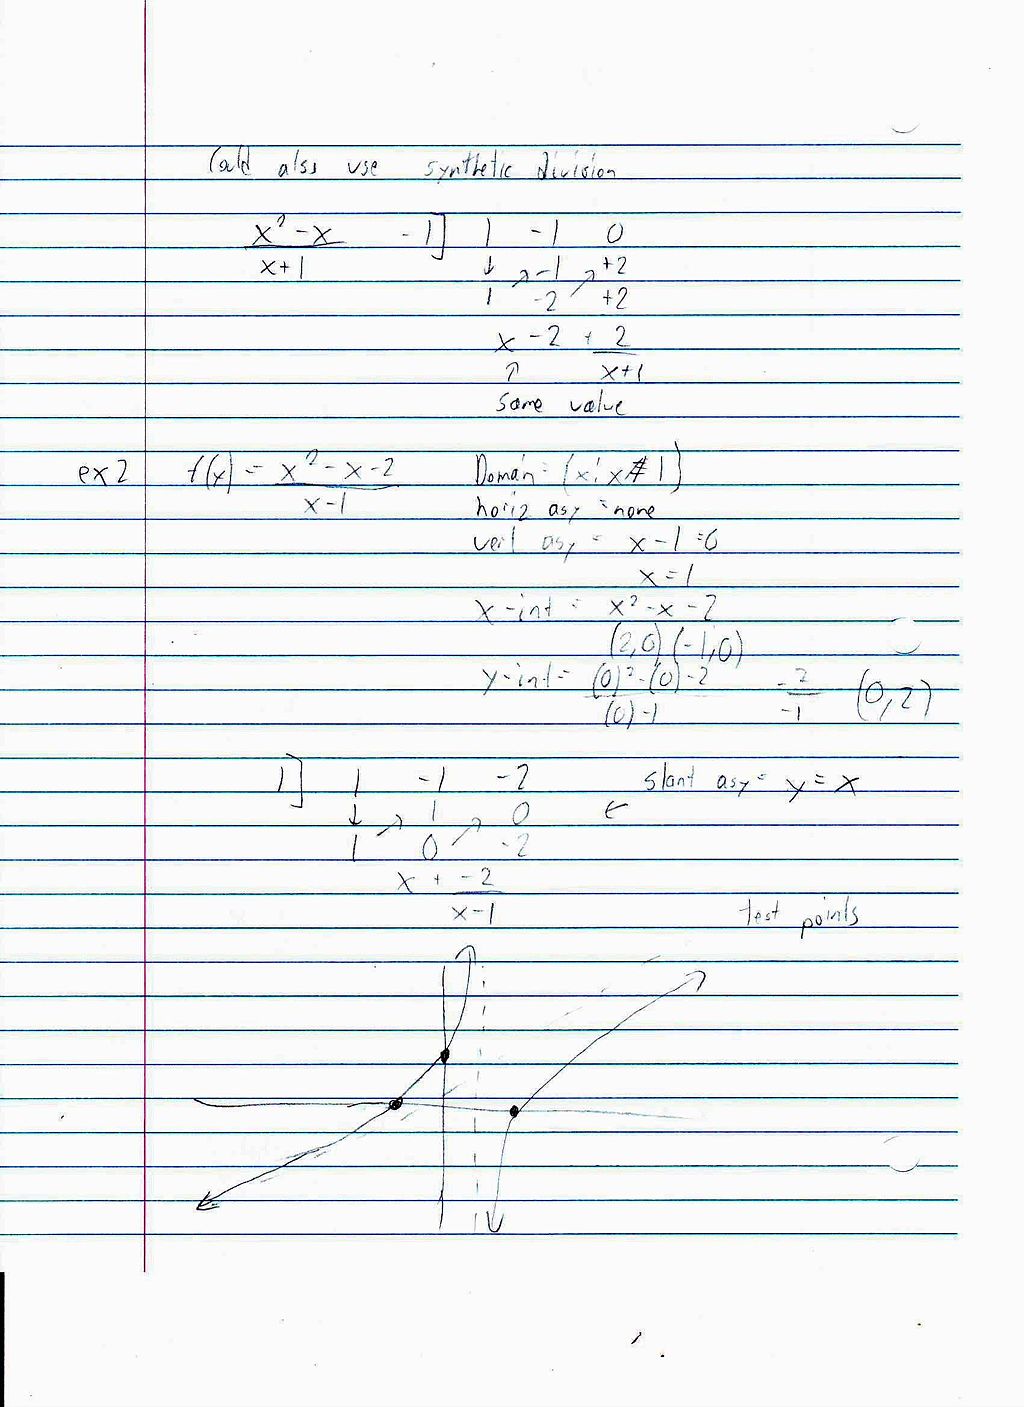 Could also use synthetic division
x² - x   -1]   1   -1   0
x+1   ↓ ↗ -1 ↗ +2
1   -2   +2
x - 2 + 2
↑   x+1
same value
ex 2   f(x) = x² - x - 2   Domain = {x: x ≠ 1}
x - 1   horiz asy = none
vert asy = x - 1 = 0
x = 1
x-int = x² - x - 2
(2,0) (-1,0)
y-int = (0)² - (0) - 2   -2   (0,2)
(0) - 1   -1
1]   1   -1   -2   slant asy = y = x
↓ ↗ 1 ↗ 0   ←
1   0   -2
x + -2
x - 1
test points